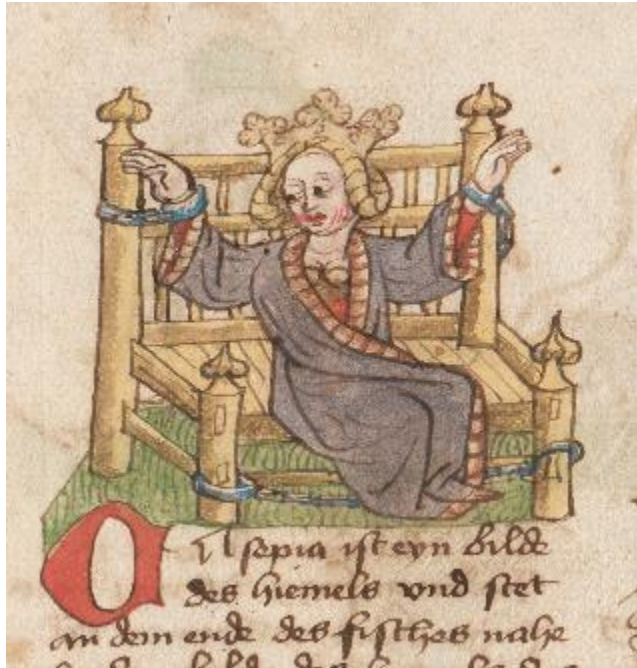 sepia ist eyn bilde
des hiemels vnd stet
an dem ende des fisches nahe